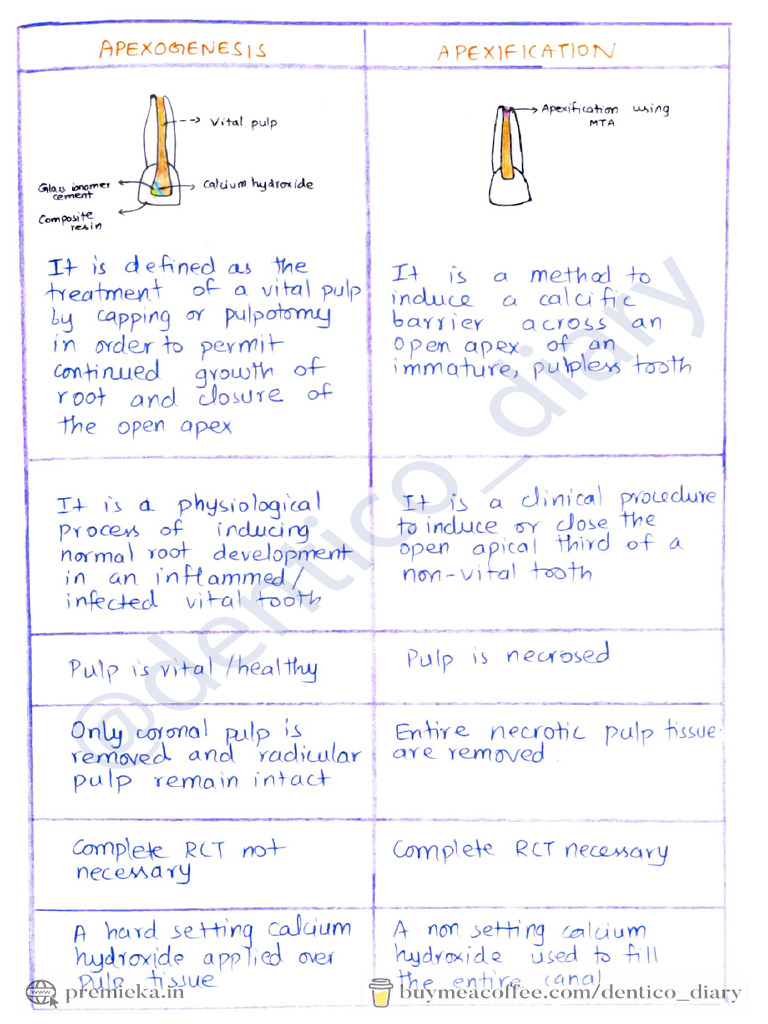 APEXOGENESIS
APEXIFICATION
Vital pulp
Glass ionomer
cement
Calcium hydroxide
Composite
resin
Apexification using
MTA
It is defined as the
treatment of a vital pulp
by capping or pulpotomy
in order to permit
continued growth of
root and closure of
the open apex
It is a method to
induce a calcific
barrier across an
open apex of an
immature, pulpless tooth
It is a physiological
process of inducing
normal root development
in an inflammed/
infected vital tooth
It is a clinical procedure
to induce or close the
open apical third of a
non-vital tooth
Pulp is vital/healthy
Pulp is necrosed
Only coronal pulp is
removed and radicular
pulp remain intact
Entire necrotic pulp tissue
are removed.
Complete RCT not
necessary
Complete RCT necessary
A hard setting calcium
hydroxide applied over
pulp tissue
A non setting calcium
hydroxide used to fill
the entire canal
@dentico_diary
premieka.in
buymeacoffee.com/dentico_diary